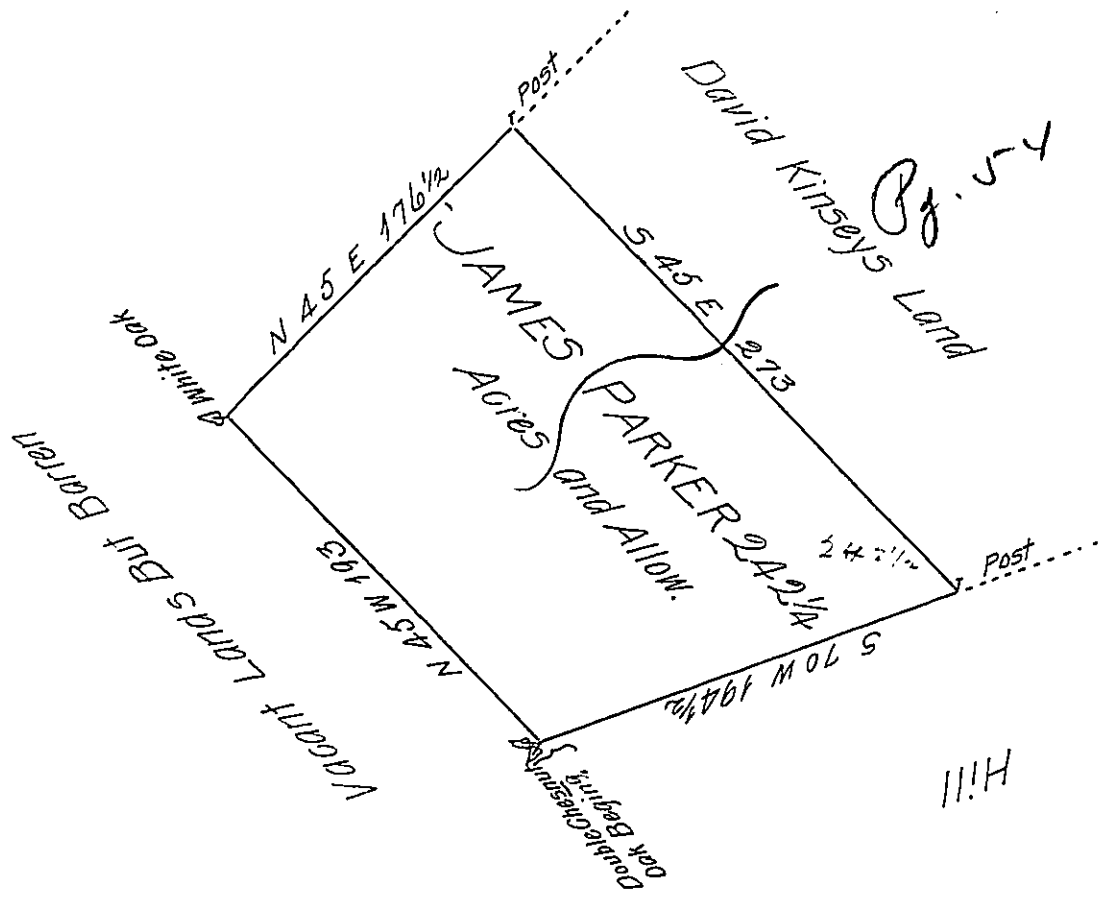 Post
David Kinseys Land
Pg. 54
N 45 E 176 1/2
S 45 E 273
JAMES PARKER 242 1/4
Acres and Allow.
White Oak
Vacant Lands But Barren
N 45 W 193
Post
S 70 W 194 1/2
Double Chesnut
Oak Begining,
Hill